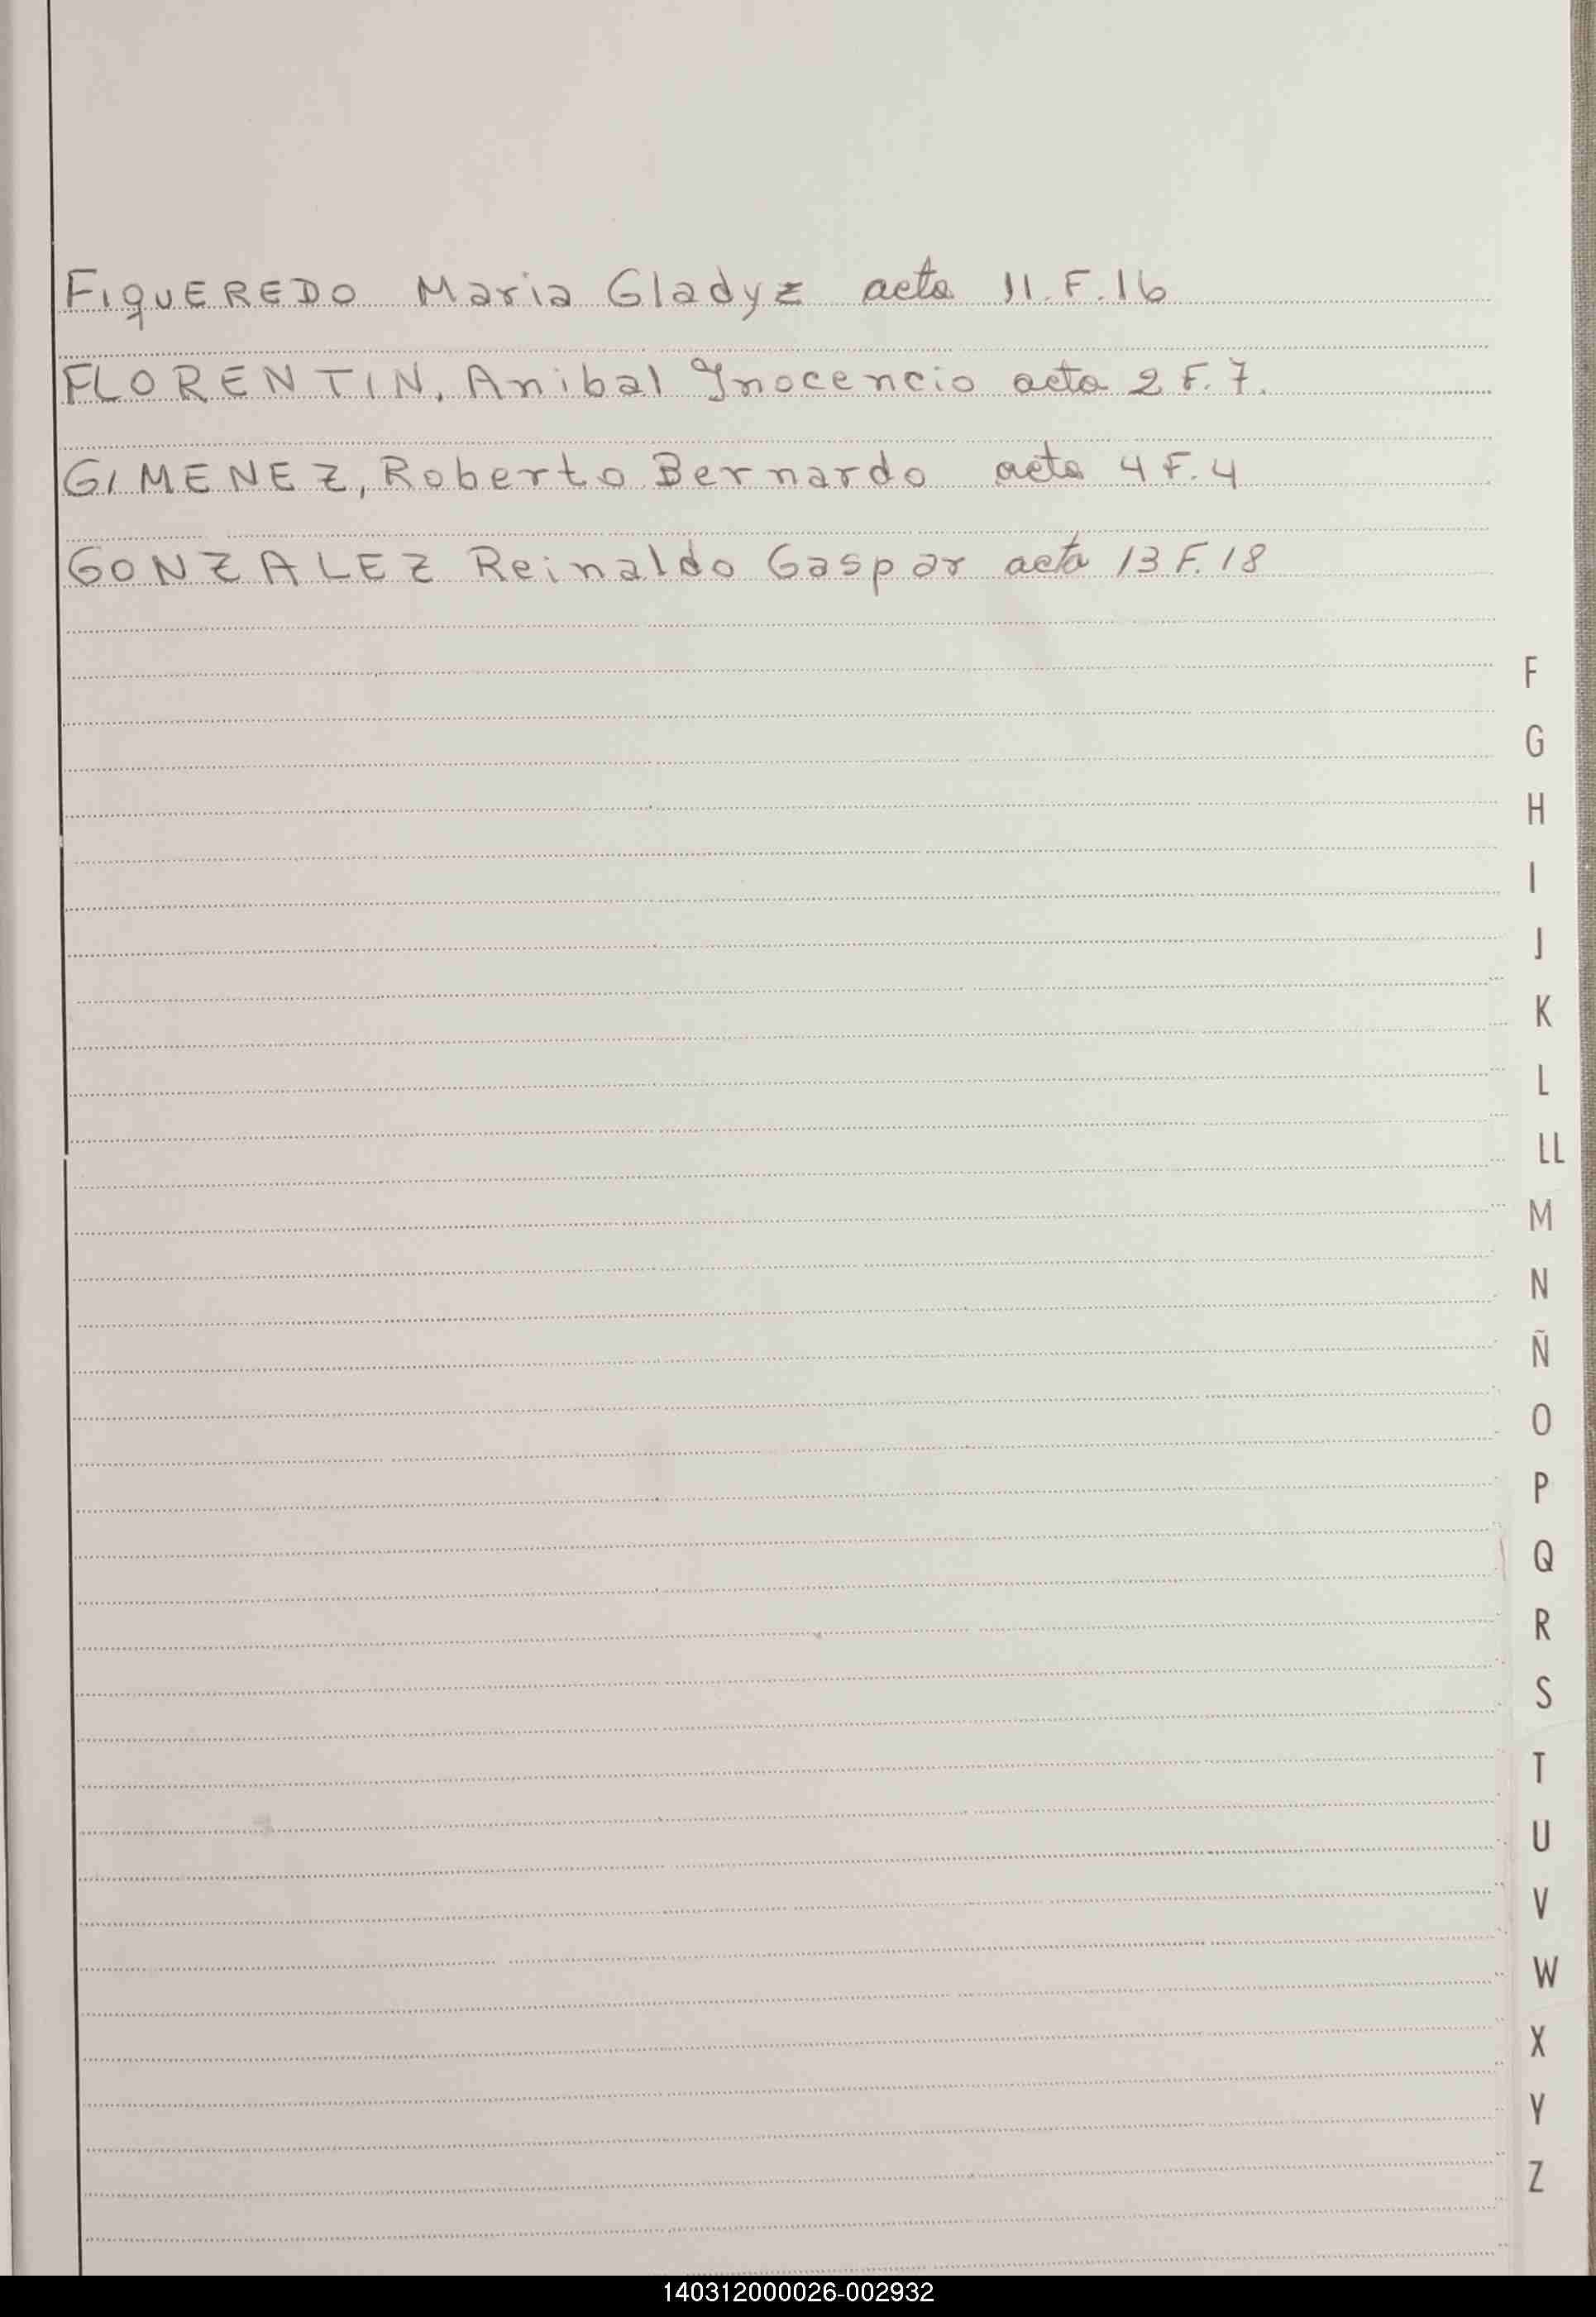 FIQUEREDO Maria Gladyz acta 11.F.16
FLORENTIN, Anibal Inocencio acta 2 F.7.
GIMENEZ, Roberto Bernardo acta 4 F.4
GONZALEZ Reinaldo Gaspar acta 13 F.18
F
G
H
I
J
K
L
LL
M
N
Ñ
O
P
Q
R
S
T
U
V
W
X
Y
Z
140312000026-002932